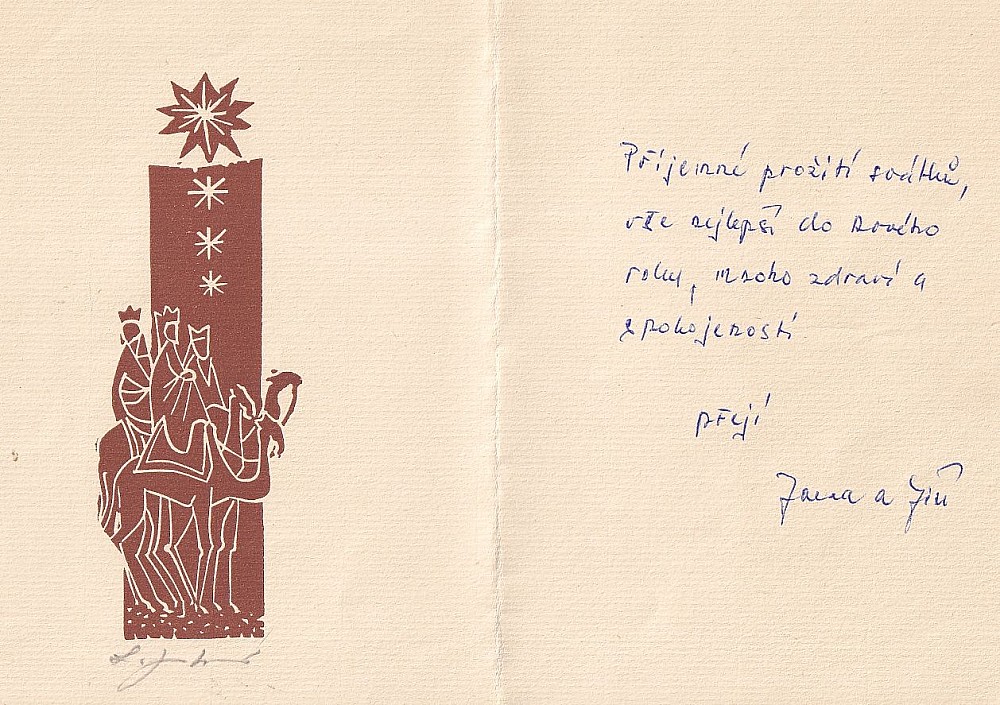 Příjemné prožití svátků,
vše nejlepší do Nového
roku, mnoho zdraví a
spokojenosti
přejí
Jana a Jiří